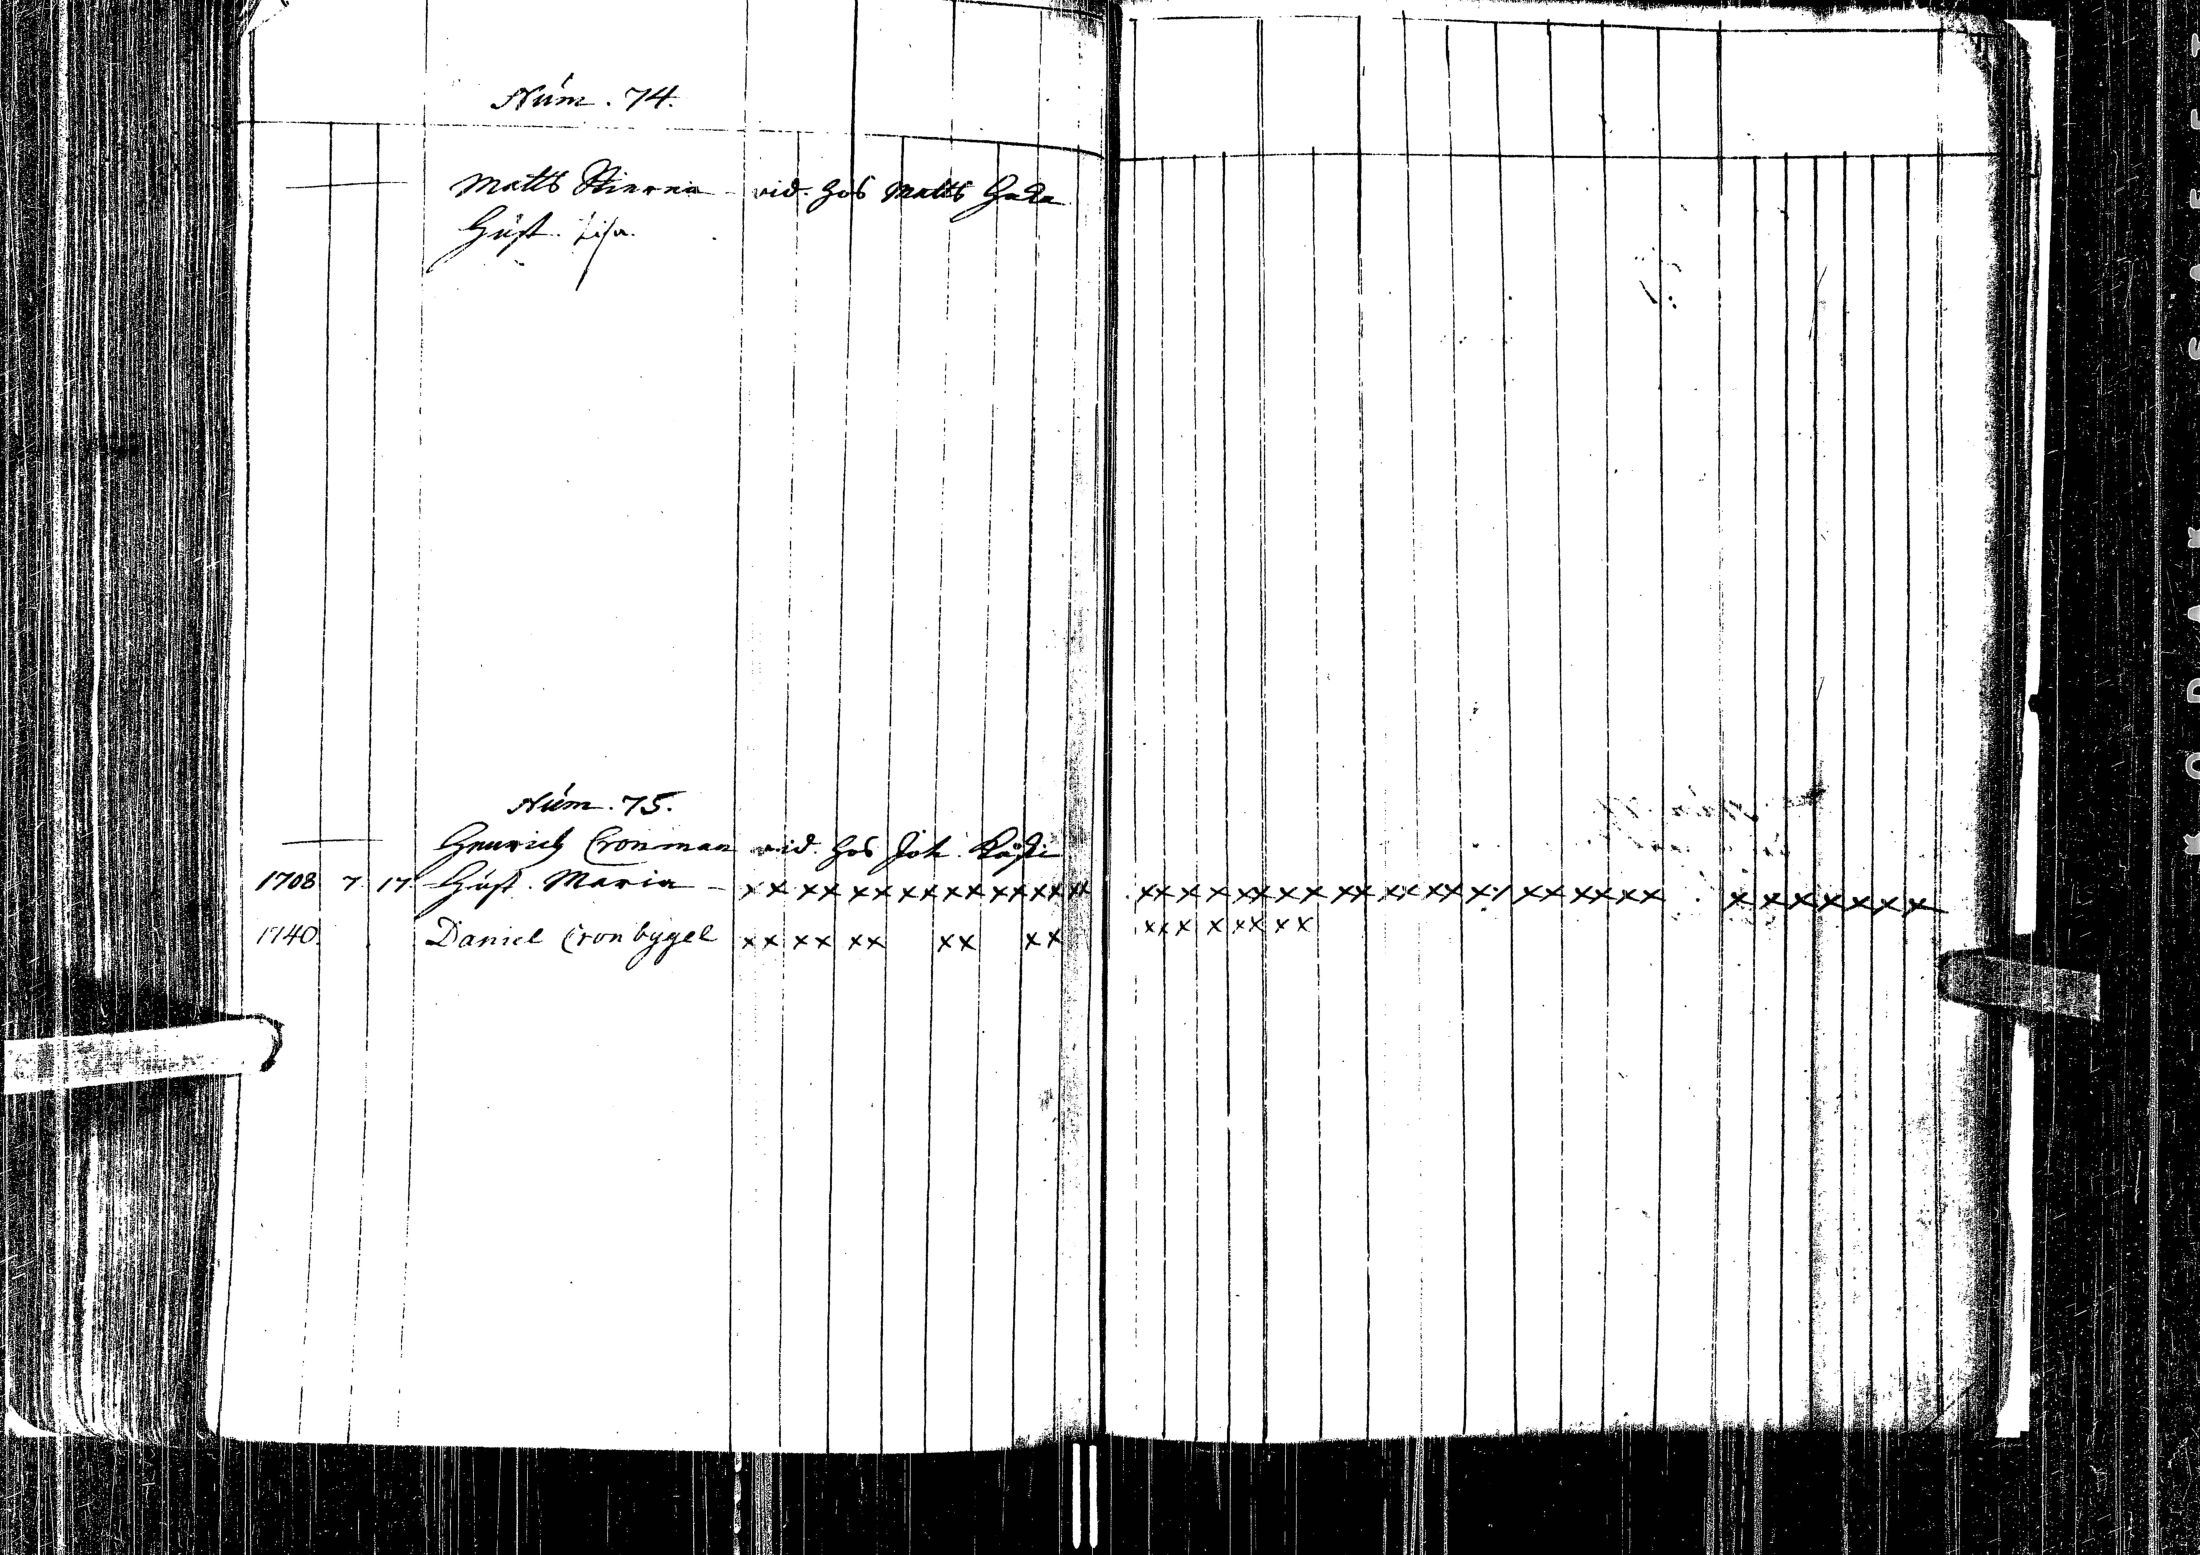 Núm. 74.
Matts Stierna - vid. hos Matts Haka
Hust. Lisa.
Núm. 75.
Henrich Cronman vid. hos Joh.
1708 7 17 Hust. Maria - xx xx xx xx xx xx xx xx xx x x xx xx xx xx xx xx xx xx xx x x x x x x x
1740. Daniel Cronbygel xx xx xx xx xx xxx x xx xx
KODAK SAFETY